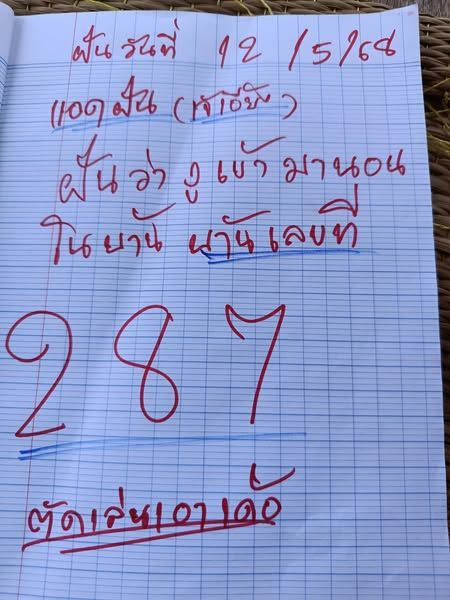 ฝัน วันที่ 12 /5/68
แอดฝัน (
ฝันว่า งู เข้า มานอน
ในบ้าน เลขที่
287
ตัดเล่นเอาเด้อ